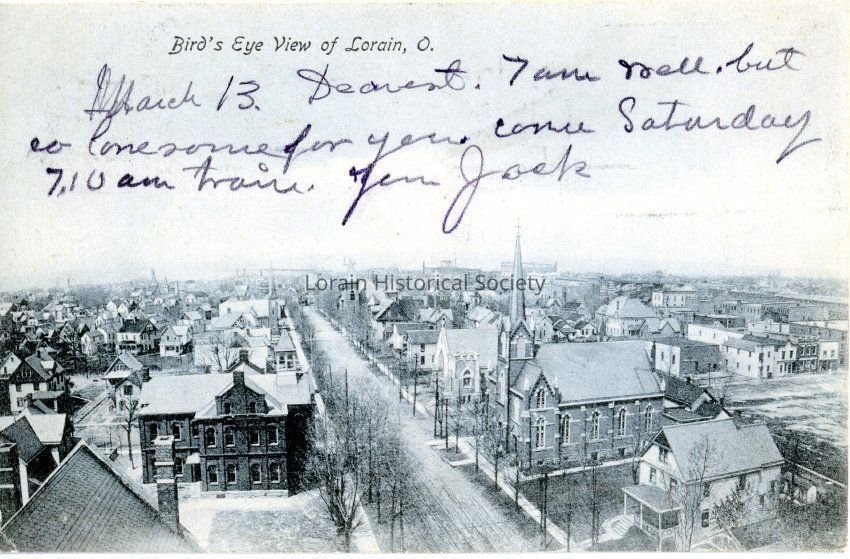 Bird's Eye View of Lorain, O.
March 13. Dearest. I am well. but
so lonesome for you. come Saturday
7.10 am train. Your Jack
Lorain Historical Society